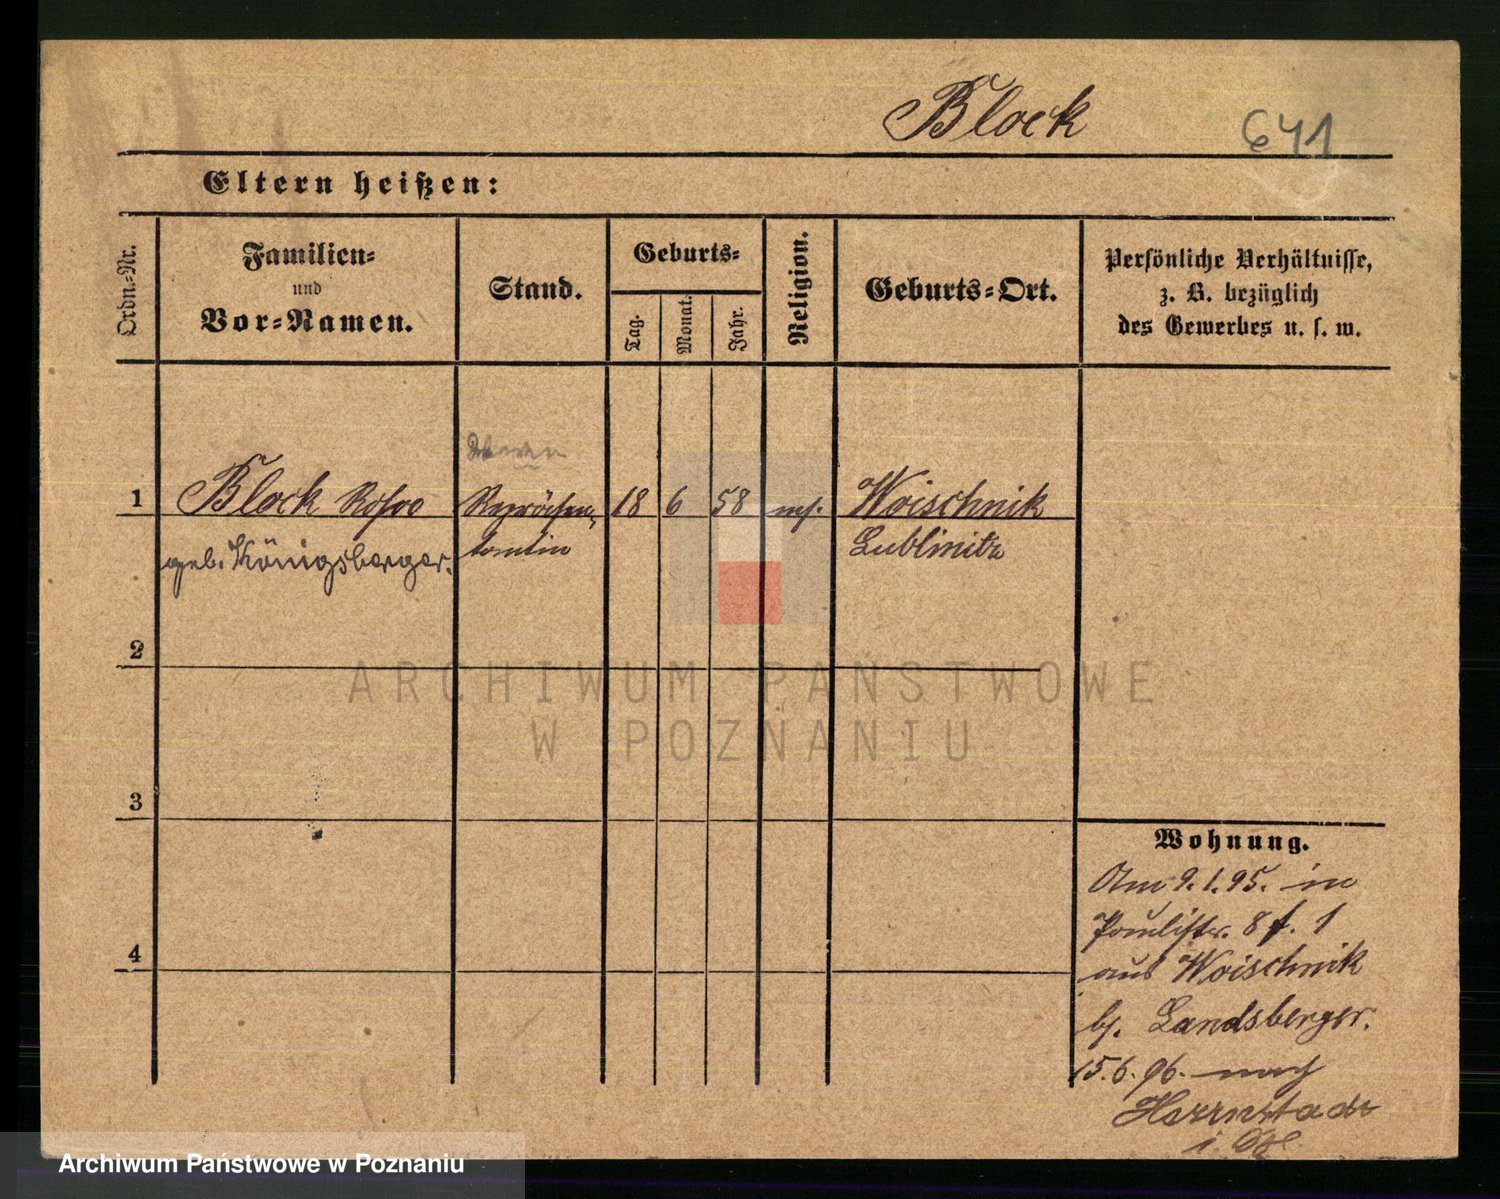 Block
641
Eltern heißen:
Ordn.-Nr.
Familien-
und
Vor-Namen.
Stand.
Geburts-
Tag.
Monat.
Jahr.
Religion.
Geburts-Ort.
Persönliche Verhältnisse,
z. B. bezüglich
des Gewerbes u. s. w.
1
Block Rosa
geb. Königsberger.
Repräsen-
tantin
18
6
58
mos.
Woischnik
Lublinitz
2
3
4
Wohnung.
Am 9.1.95. in
Paulistr. 8 f. 1
aus Woischnik
bs. Landsberger.
15.6.96. nach
Herrnstadt
i.
ARCHIWUM PAŃSTWOWE
W POZNANIU
Archiwum Państwowe w Poznaniu